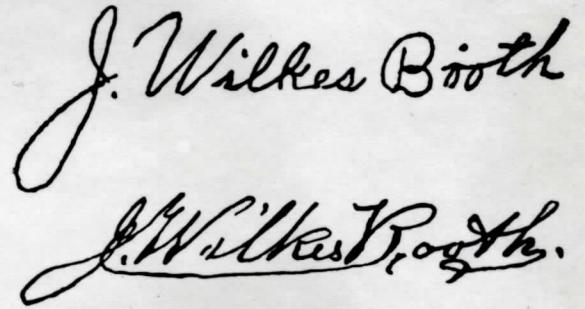 J. Wilkes Booth
J. Wilkes Booth.